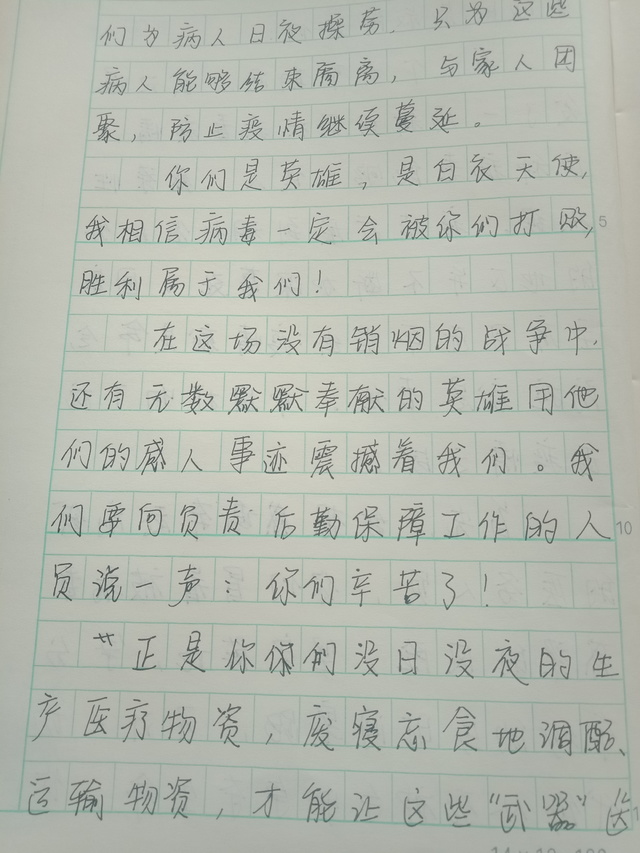 们为病人日夜操劳，只为这些
病人能够结束隔离，与家人团
聚，防止疫情继续蔓延。
你们是英雄，是白衣天使，
我相信病毒一定会被你们打败，
5
胜利属于我们！
在这场没有销烟的战争中，
还有无数默默奉献的英雄用他
们的感人事迹震撼着我们。我
们要向负责后勤保障工作的人
10
员说一声：你们辛苦了！
正是你你们没日没夜的生
产医疗物资，废寝忘食地调配、
运输物资，才能让这些“武器”